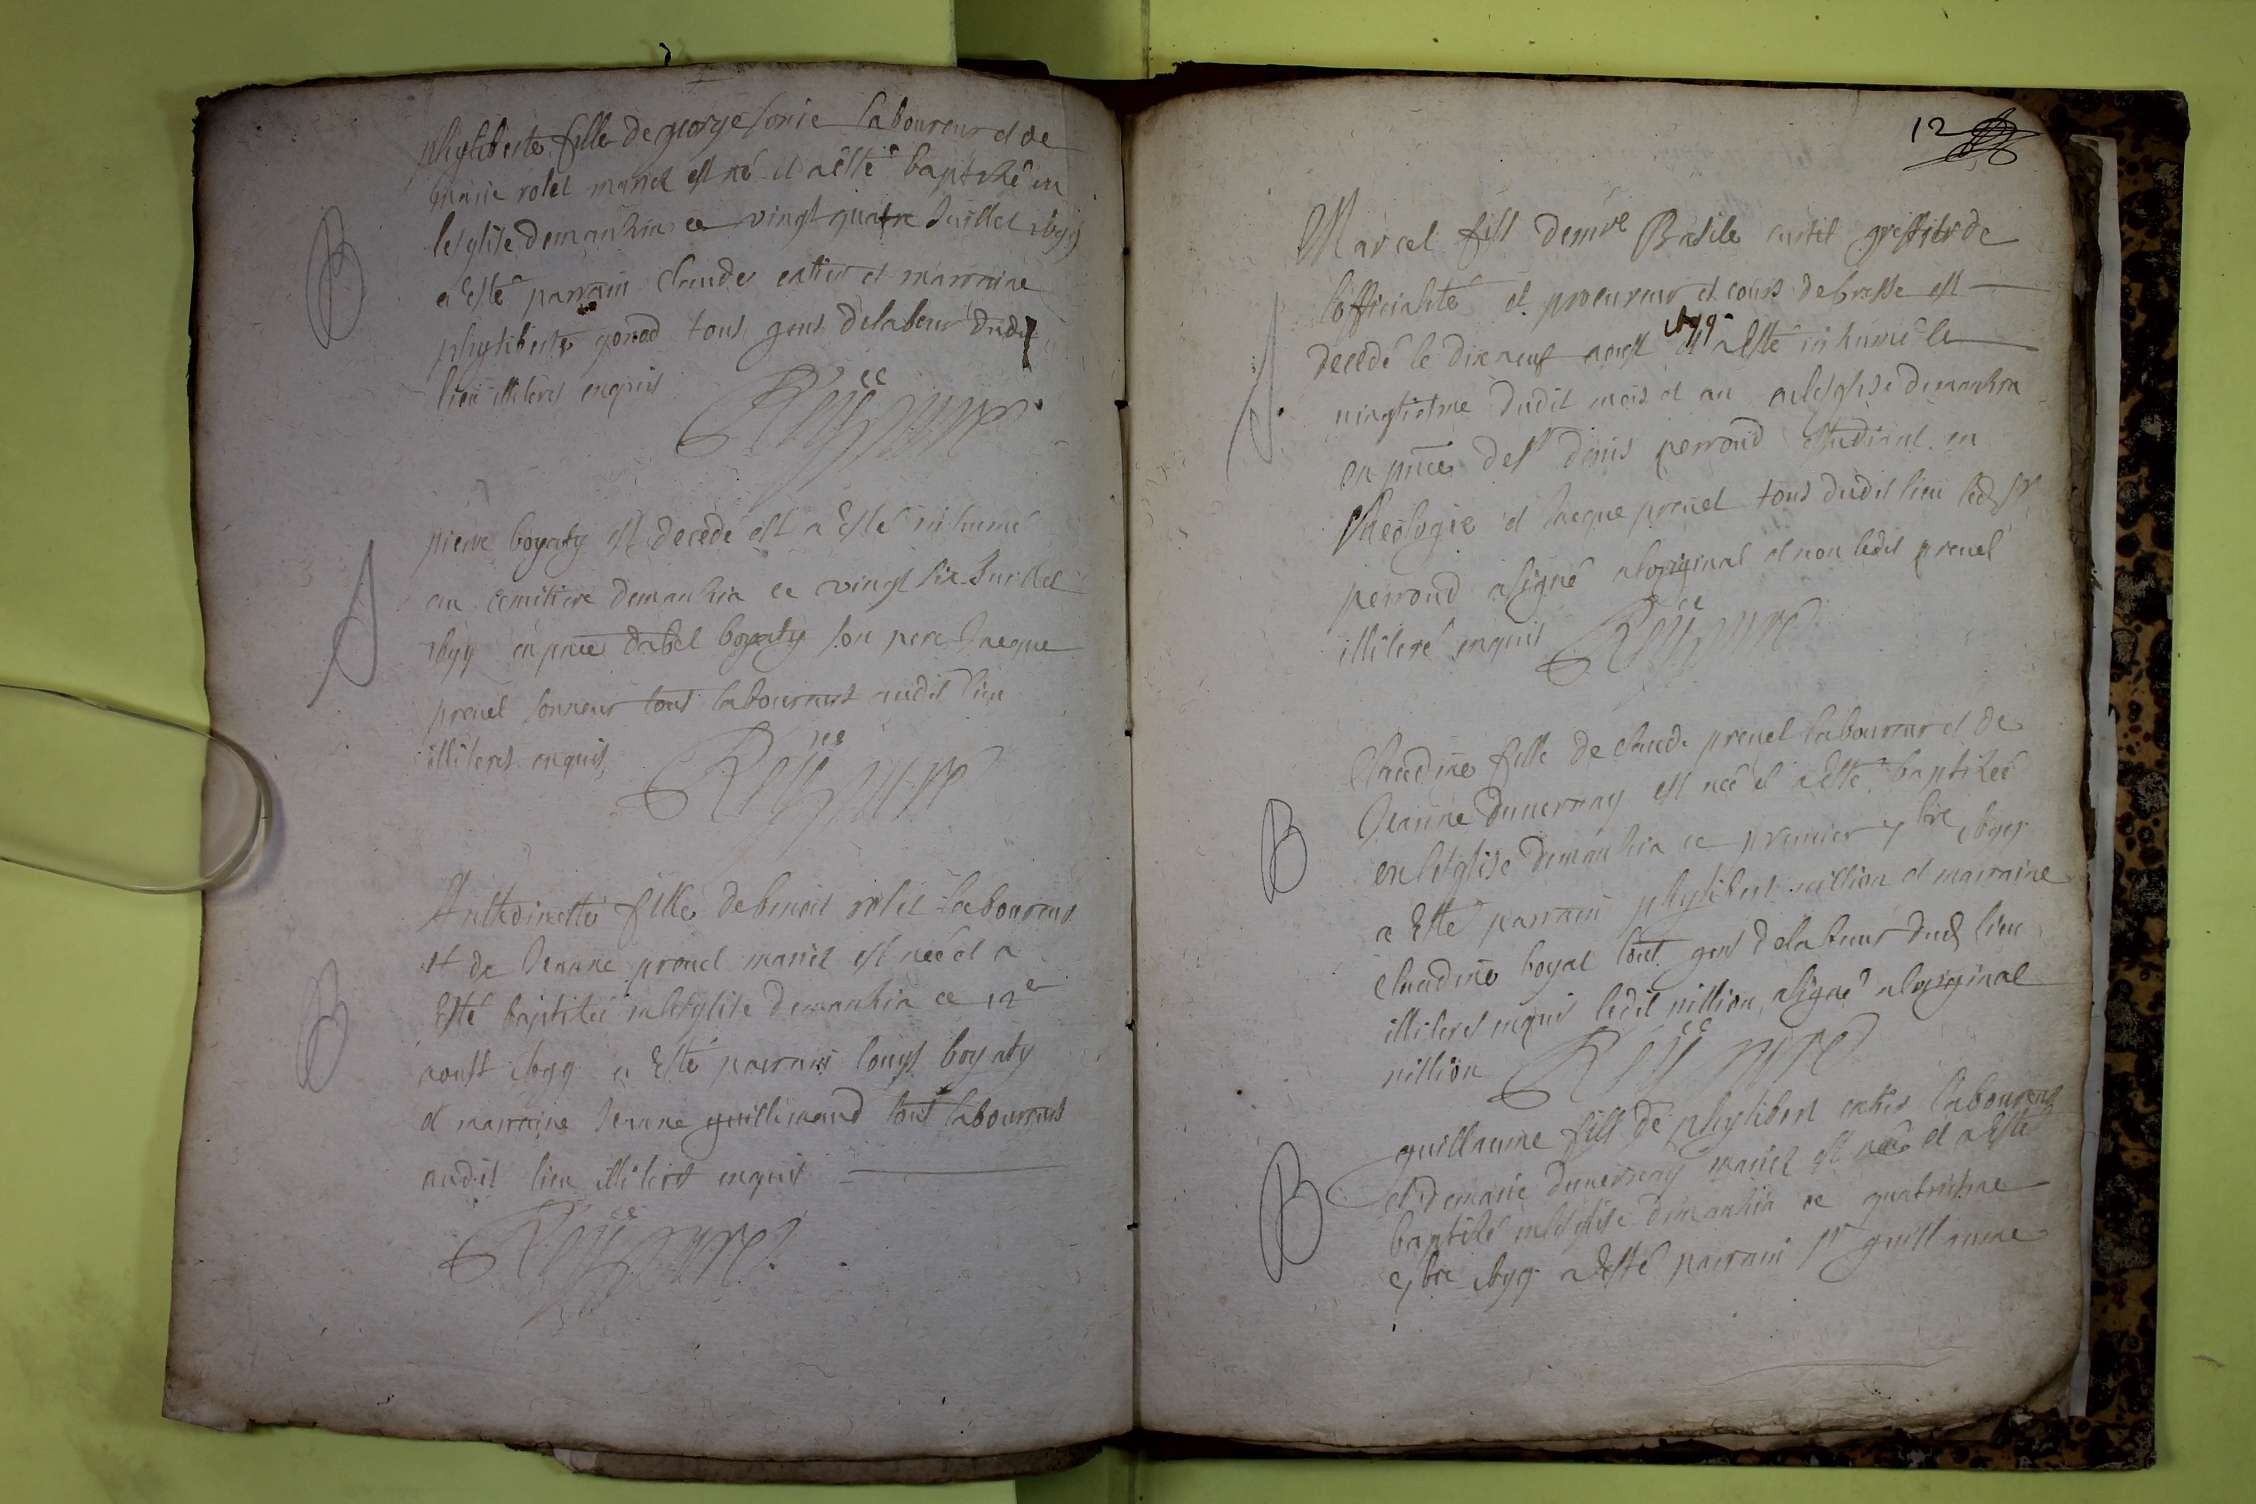 B
phyliberte fille de george sorie laboureur et de
marie rolet mariez est né et a esté baptizée en
leglise demanzia ce vingt quatre Juillet 1699
a esté parrain claude catier et marraine
phyliberte gonod tous gens delabeur dudi
lieu illiteres enquis
S
pierre boyaty est decedé est a esté inhumé
au cemitiere demanzia ce vingt six Juillet
1699 en pnce dabel boyaty son pere Jacque
preuel sonneur tous laboureurs audit lieu
illiteres enquis
B
Anthoinette fille debenoit rolet laboureur
et de Jeanne preuel mariez est née et a
esté baptizée enleglise demanzia ce 12e
aoust 1699 a esté parrain louys boyaty
et marraine Jeanne guillimand tous laboureurs
audit lieu illiteres enquis
12
S
Marcel fils demre Basile curtil greffier de
lofficialité et procureur et cours debresse est
decedé le dix neuf aoust 1699 et a esté inhumé le
vingtiesme dudit mois et an enlesglise demanzia
en pnce de sr denis perroud estudiant en
theologie et Jacque preuel tous dudit lieu led sr
perroud a signé aloriginal et non ledit preuel
illiteré enquis
B
Claudine fille de claude preuel laboureur et de
Jeanne duuernay est née et a esté baptizée
en lesglise demanzia ce premier 7bre 1699
a esté parrain phylibert nillion et marraine
claudine boyat tout gens delabeur dud lieu
illiteres enquis ledit nillion a signé aloriginal
nillion
B
guillaume fils de phylibert catier laboureur
et demarie duuernay mariez est né et a esté
baptizé enlesglise demanzia ce quatriesme
7bre 1699 a esté parrain sr guillaume